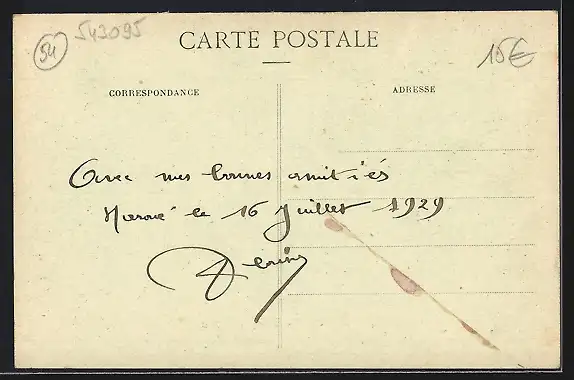 54
543095
CARTE POSTALE
15€
CORRESPONDANCE
ADRESSE
Avec mes bonnes amitiés
le 16 Juillet 1929